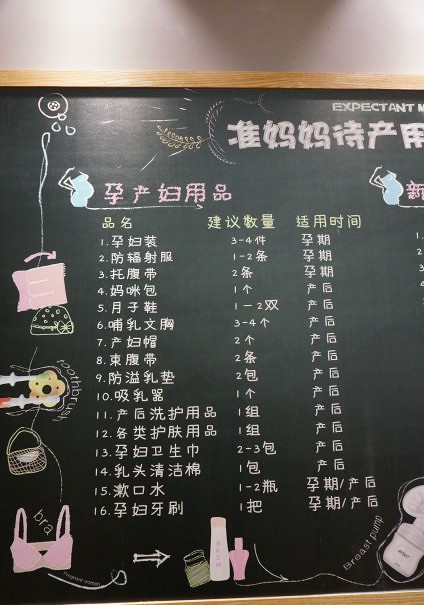 EXPECTANT M
准妈妈待产用
孕产妇用品
新
品名 建议数量 适用时间
1.孕妇装 3-4件 孕期
2.防辐射服 1-2条 孕期
3.托腹带 2条 孕期
4.妈咪包 1个 产后
5.月子鞋 1-2双 产后
6.哺乳文胸 3-4个 产后
7.产妇帽 2个 产后
8.束腹带 2条 产后
9.防溢乳垫 2包 产后
10.吸乳器 1个 产后
11.产后洗护用品 1组 产后
12.各类护肤用品 1组 产后
13.孕妇卫生巾 2-3包 产后
14.乳头清洁棉 1包 产后
15.漱口水 1-2瓶 孕期/产后
16.孕妇牙刷 1把 孕期/产后
toothbrush
bra
Pregnant woman
Breast pump